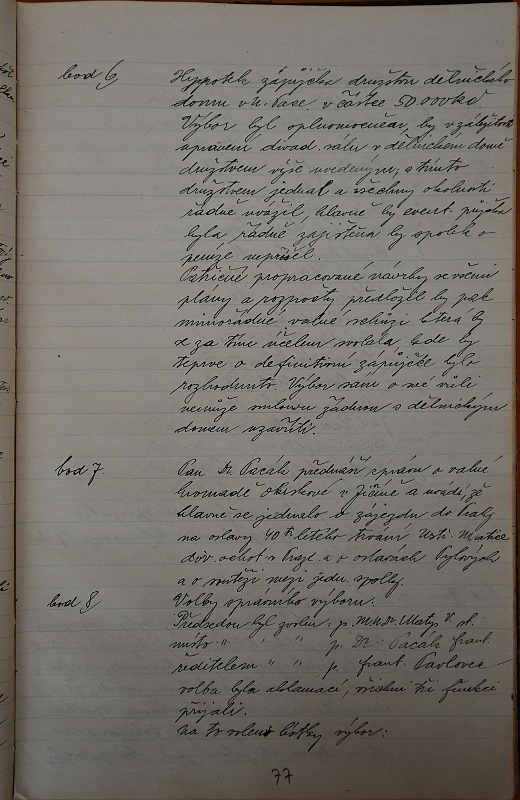 bod 6, Hypotek. zápůjčka družstvu dělnického
domu v N. Pace, v částce 50.000 Kč
Výbor byl splnomocněn, by v záležitosti
upravení divad. sálu v dělnickem domě
družstvem výše uvedeným, s tímto
družstvem jednal a všechny okolnosti
řádně uvážil, hlavně by event. půjčka
byla řádně zajištěna by spolek o
peníze nepřišel.
propracované návrhy se všemi
plány a rozpočty předložil by pak
mimořádné valné schůzi která by
se za tím účelem svolala, kde by
teprve o definitivní zápůjčce bylo
rozhodnuto. Výbor sám o své vůli
nemůže smlouvu žádnou s dělnickým
domem uzavříti.
bod 7. Pan Dr. Pacák přednáší zprávu o valné
hromadě okrskové v Jičíně a uvádí, že
hlavně se jednalo o zájezdu do Prahy
na oslavy 40ti letého trvání Ústř. Matice
div. ochot. v Praze a o oslavách Pylových
a o soutěži mezi jedn. spolky.
bod 8, Volby správního výboru:
Předsedou byl zvolen: p. MUDr. Matys V. st.
místo " " " p. Dr. Pacák Frant.
ředitelem " " p. Frant. Pavlovec
volba byla aklamací, všichni tři funkci
přijali.
Na to volen lístky výbor:
77